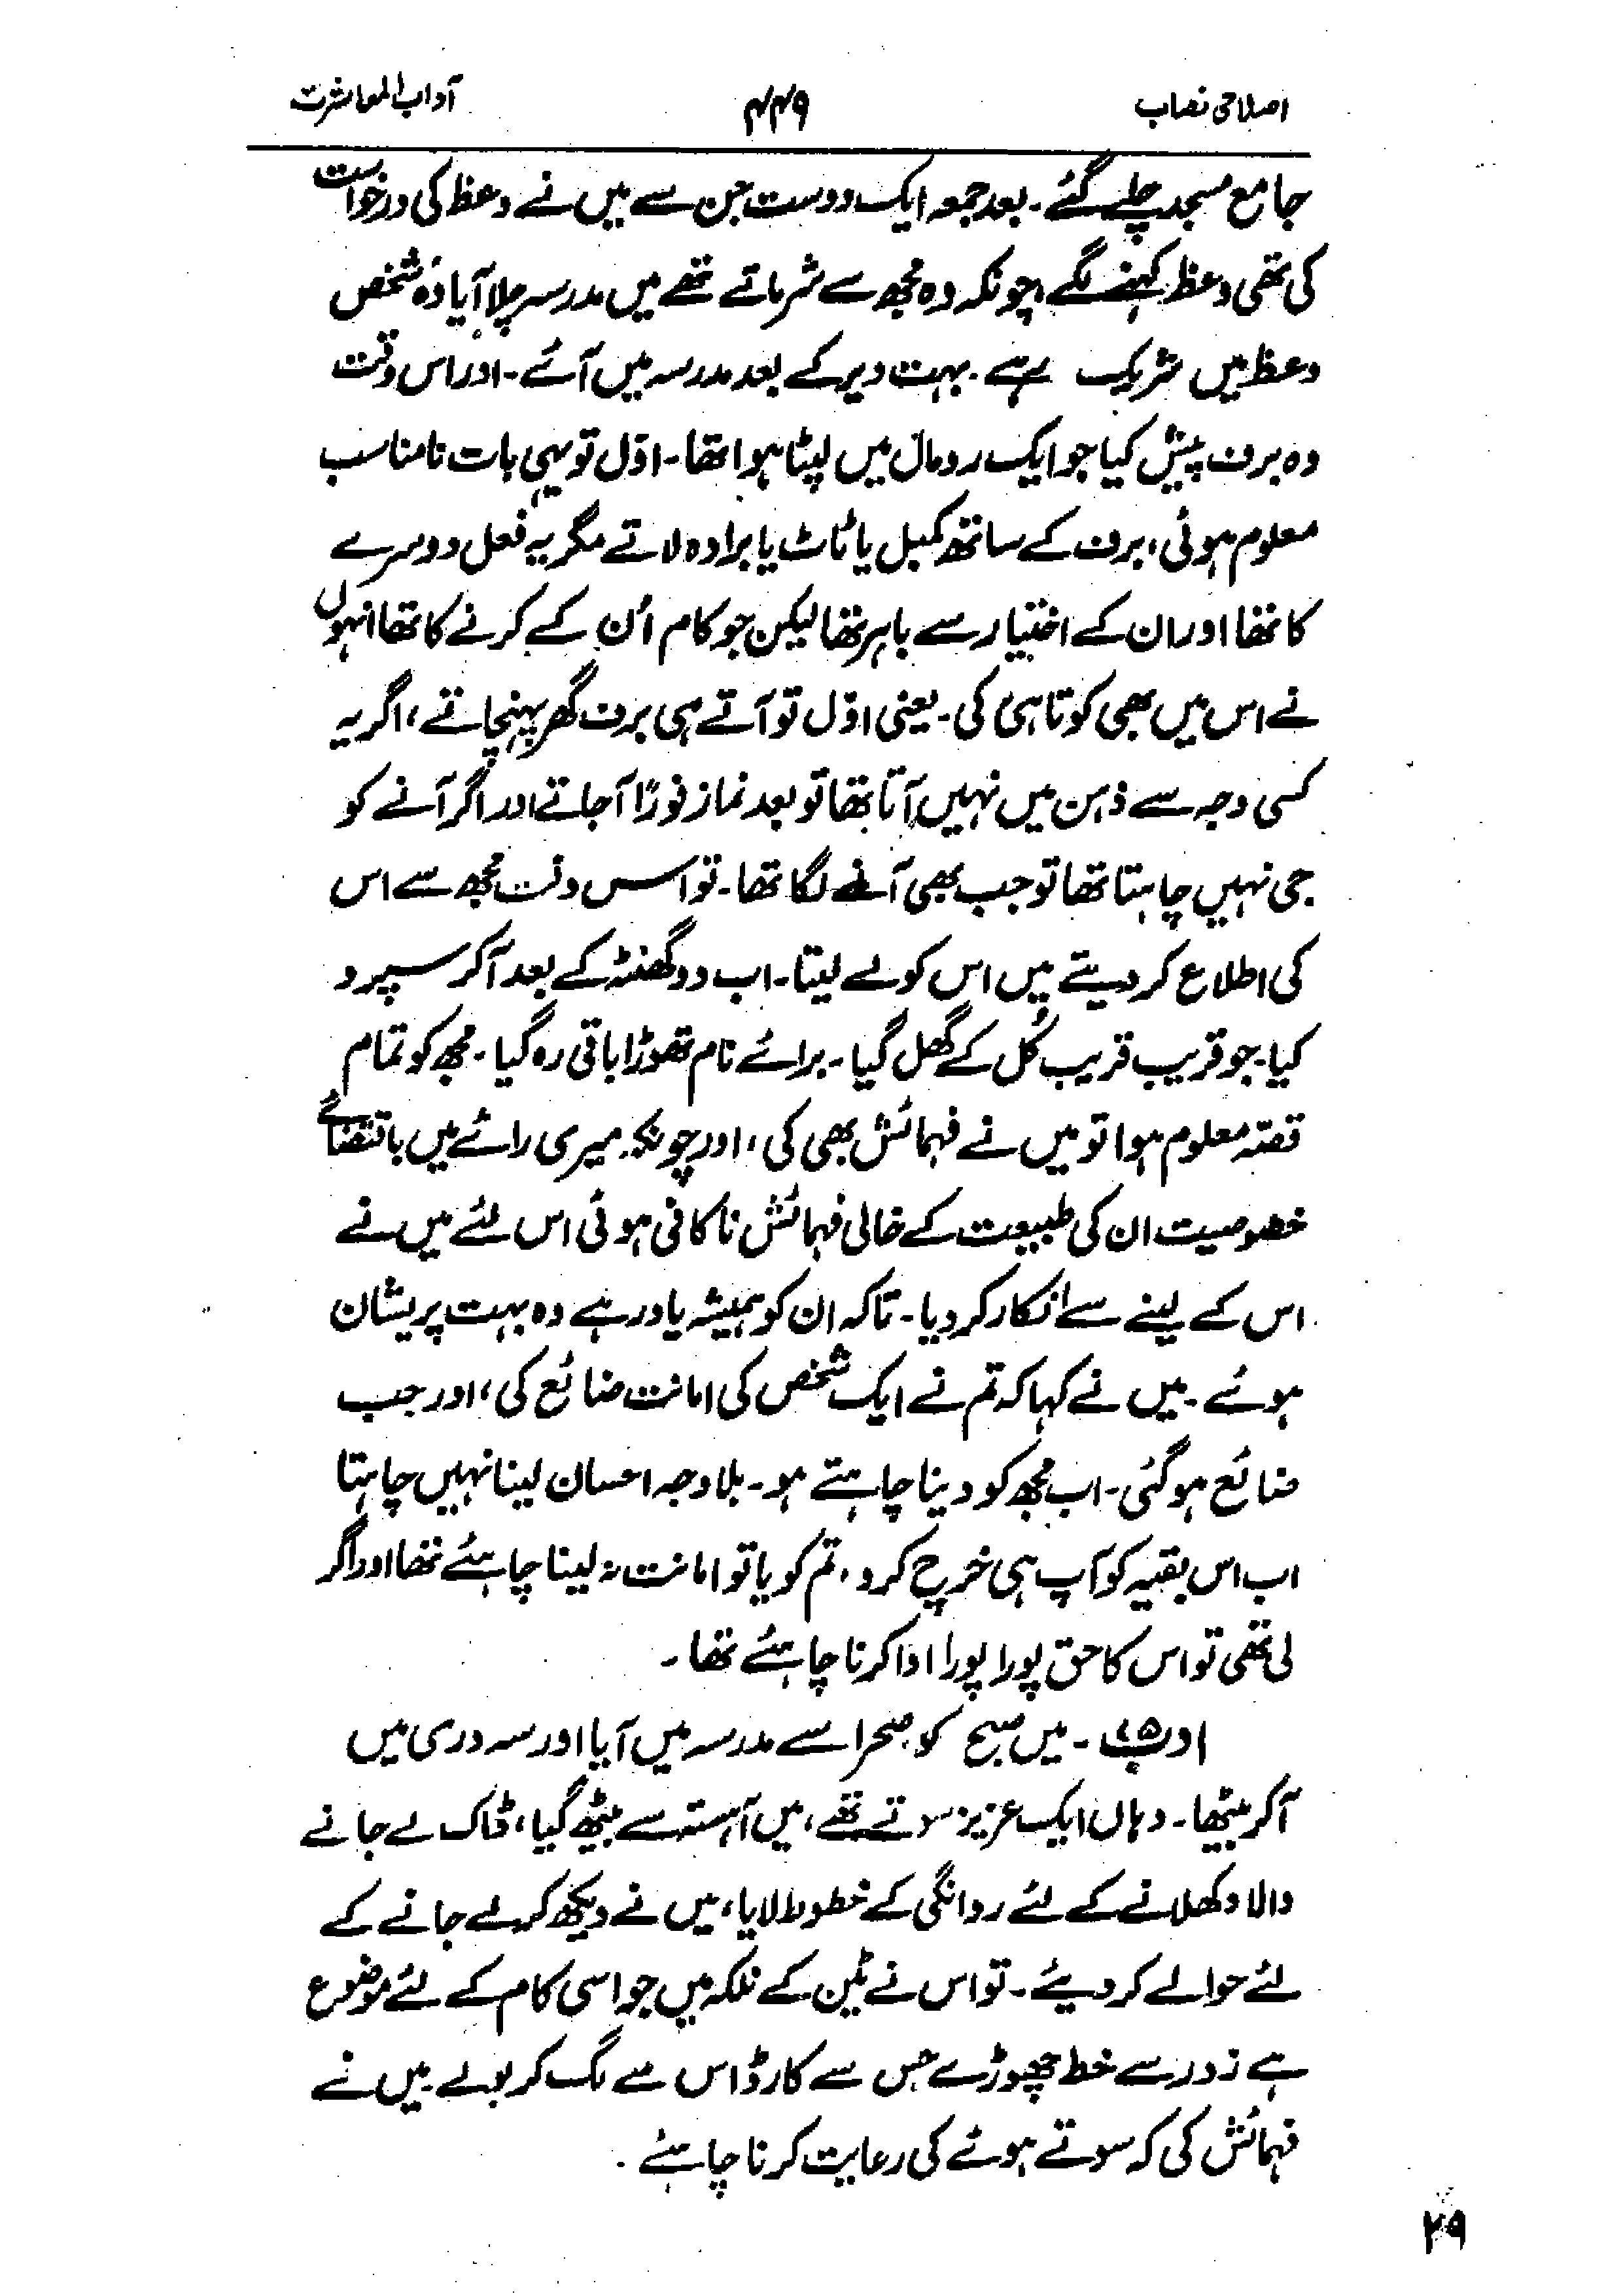 اصلاحی نصاب ۴۴۹ آداب المعاشرت
جامع مسجد چلے گئے۔ بعد جمعہ ایک دوست جن سے میں نے وعظ کی درخواست
کی تھی وعظ کہنے لگے، چونکہ وہ مجھ سے شرماتے تھے میں مدرسہ چلا آیا وہ شخص
وعظ میں شریک رہے۔ بہت دیر کے بعد مدرسہ میں آئے۔ اور اس وقت
وہ برف پیش کیا جو ایک رومال میں لپٹا ہوا تھا۔ اوّل تو یہی بات نامناسب
معلوم ہوئی، برف کے ساتھ کمبل یا ٹاٹ یا برادہ لاتے مگر یہ فعل دوسرے
کا تھا اور ان کے اختیار سے باہر تھا لیکن جو کام اُن کے کرنے کا تھا انہوں
نے اس میں بھی کوتاہی کی۔ یعنی اوّل تو آتے ہی برف گھر پہنچاتے، اگر یہ
کسی وجہ سے ذہن میں نہیں آتا تھا تو بعد نماز فورًا آجاتے اور اگر آنے کو
جی نہیں چاہتا تھا تو جب بھی آنے لگا تھا۔ تو اس وقت مجھ سے اس
کی اطلاع کر دیتے میں اس کو لے لیتا۔ اب دو گھنٹہ کے بعد آکر سپرد
کیا۔ جو قریب قریب کُل کے گھل گیا۔ برائے نام تھوڑا باقی رہ گیا۔ مجھ کو تمام
قصّہ معلوم ہوا تو میں نے فہمائش بھی کی، اور چونکہ میری رائے میں باقتضائے
خصوصیت ان کی طبیعت کے خالی فہمائش ناکافی ہوئی اس لئے میں نے
اس کے لینے سے انکار کر دیا۔ تاکہ ان کو ہمیشہ یاد رہے وہ بہت پریشان
ہوئے۔ میں نے کہا کہ تم نے ایک شخص کی امانت ضائع کی، اور جب
ضائع ہوگئی۔ اب مجھ کو دینا چاہتے ہو۔ بلاوجہ احسان لینا نہیں چاہتا
اب اس بقیہ کو آپ ہی خرچ کرو، تم کو یا تو امانت نہ لینا چاہئے تھا اور اگر
لی تھی تو اس کا حق پورا پورا ادا کرنا چاہئے تھا۔
ادب ۶۵۔ میں صبح کو صحرا سے مدرسہ میں آیا اور سہ دری میں
آکر بیٹھا۔ وہاں ایک عزیز سوتے تھے، میں آہستہ سے بیٹھ گیا، ڈاک لے جانے
والا دکھلانے کے لئے روانگی کے خطوط لایا، میں نے دیکھ کر لے جانے کے
لئے حوالے کر دیئے۔ تو اس نے ٹین کے نلکہ میں جو اسی کام کے لئے موضوع
ہے زور سے خط چھوڑے جس سے کارڈ اس سے لگ کر بولے۔ میں نے
فہمائش کی کہ سوتے ہوئے کی رعایت کرنا چاہئے۔
۲۹